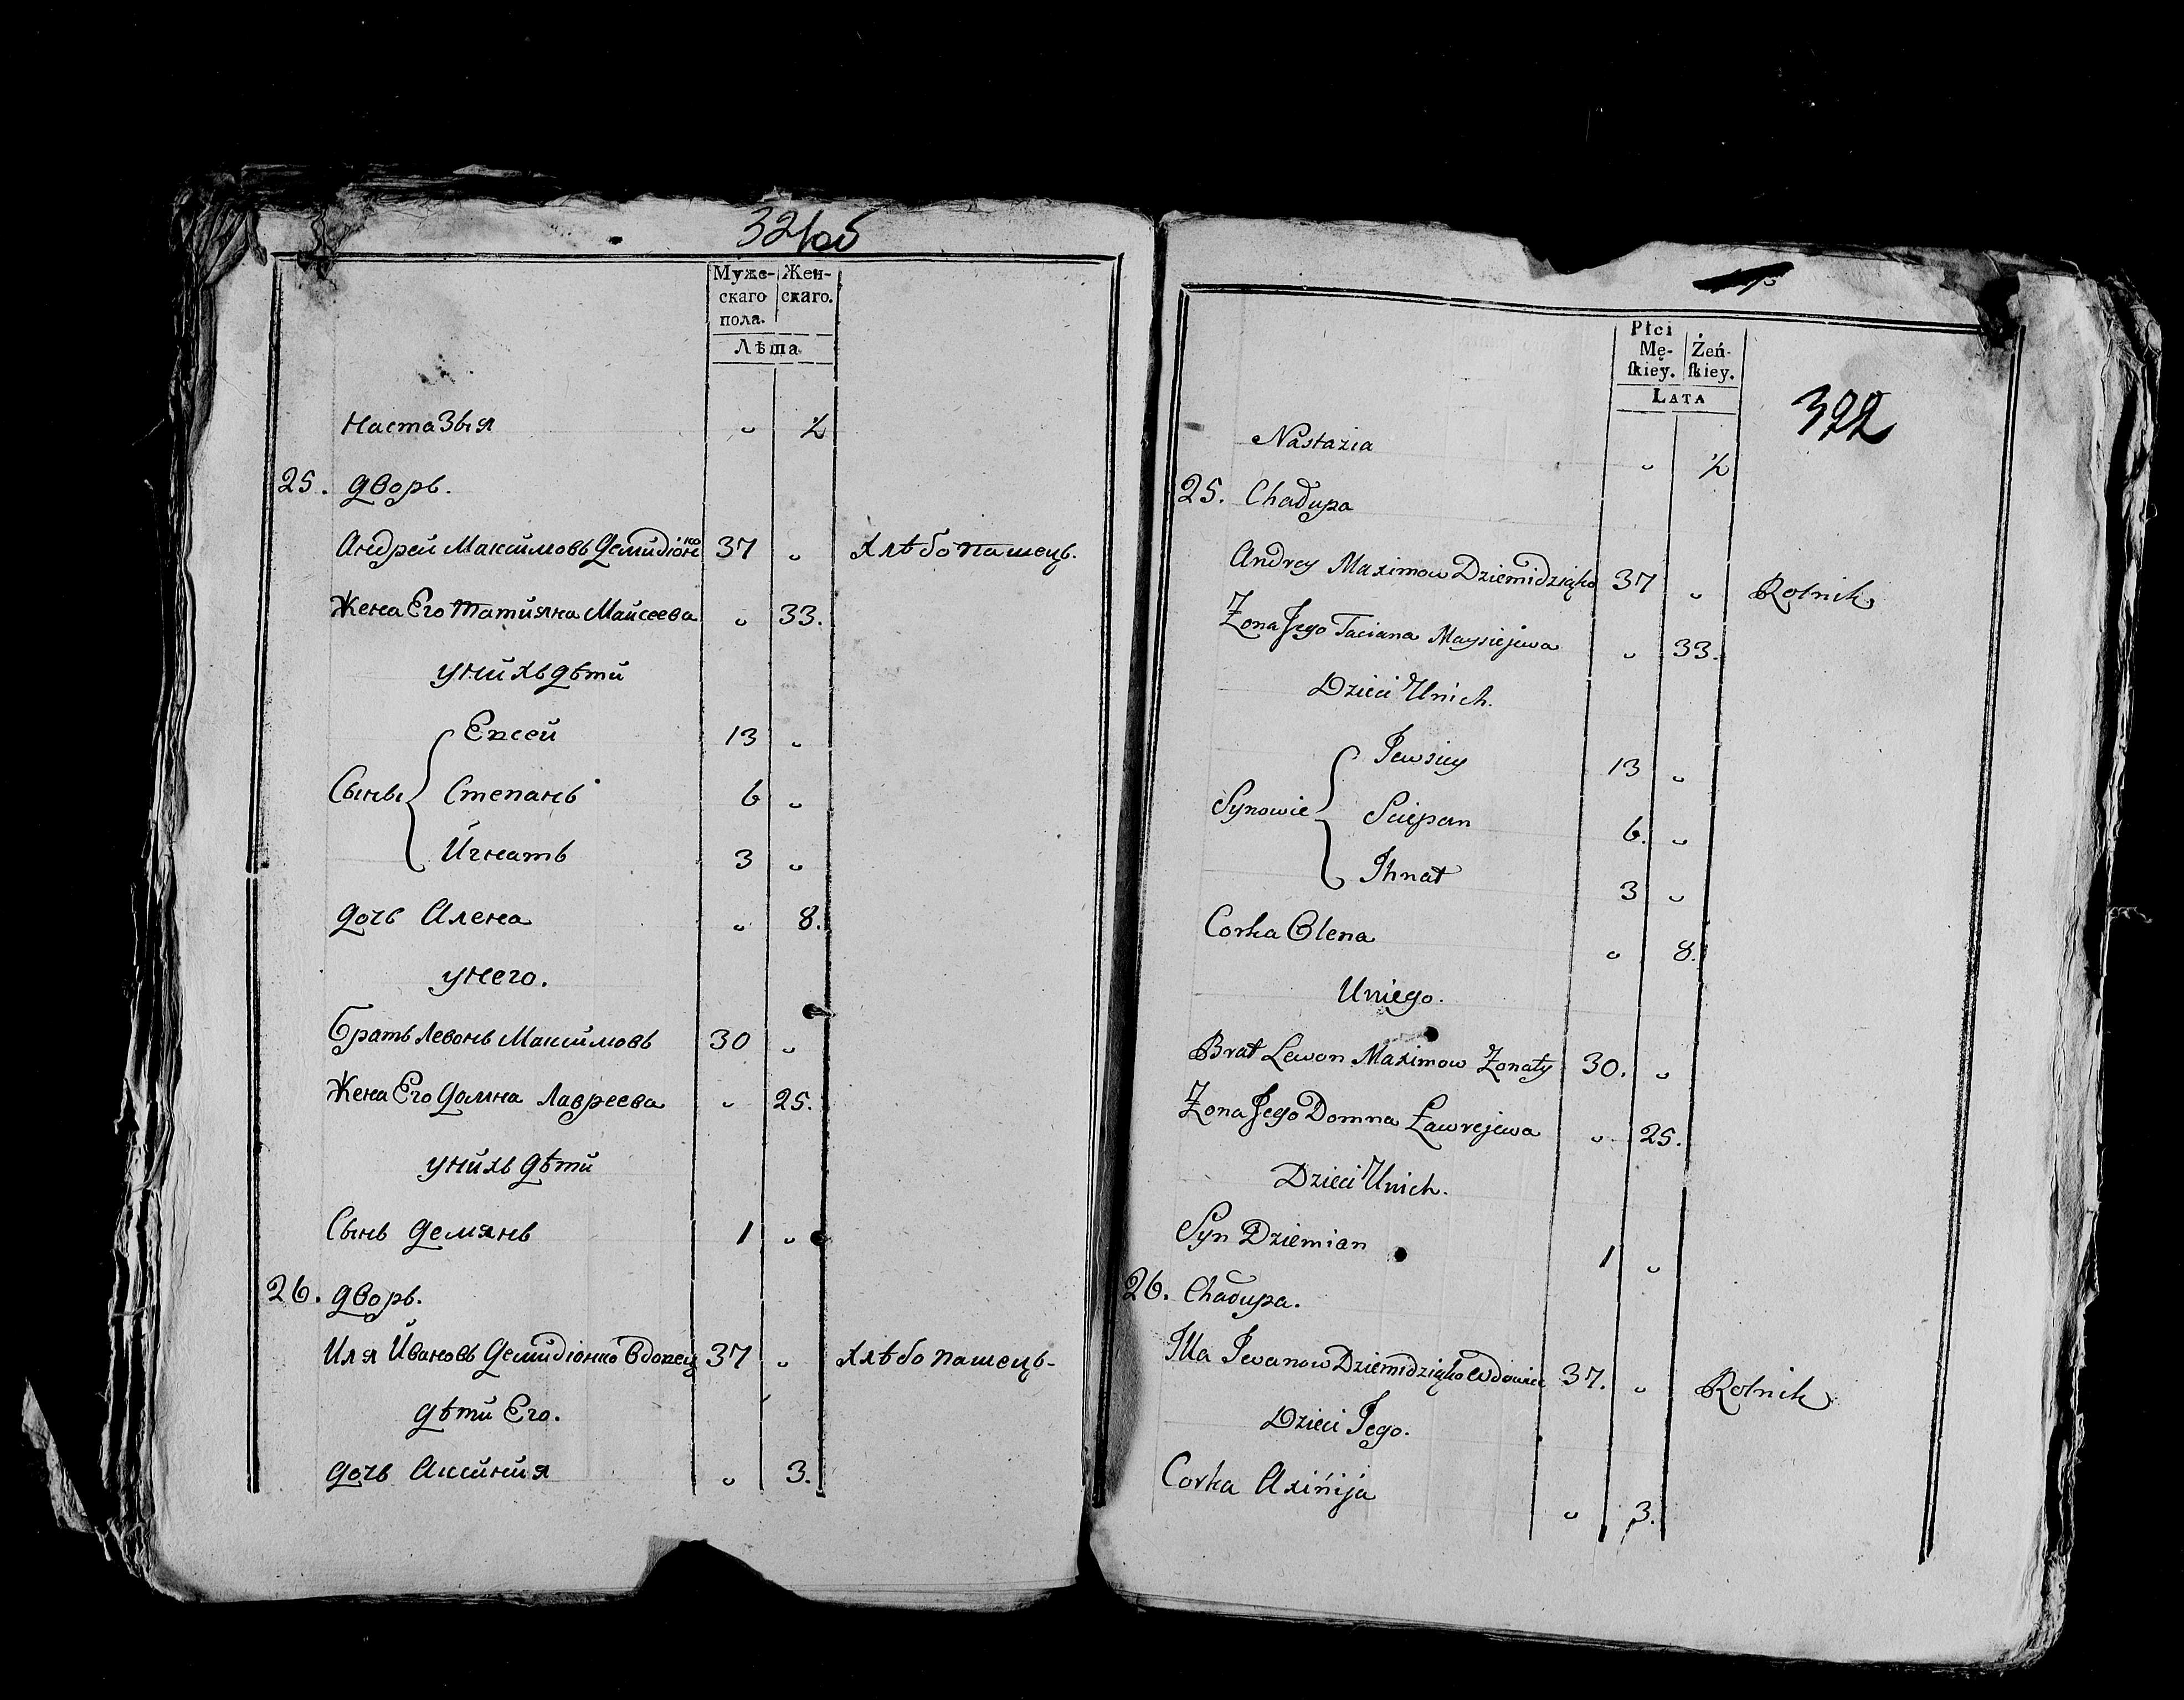 321об
Муже- Жен-
скаго скаго.
пола.
Лѣта
Настазыя " ½
25. дворъ.
Андрей Максимовъ Демидіонко 37 " хлѣбопашецъ.
Жена Его Татияна Маисеева " 33.
унихъ дѣти
Евсей 13 "
Сыны Степанъ 6 "
Игнатъ 3 "
дочь Алена " 8.
унего.
братъ Левонъ Максимовъ 30 "
Жена Его Домна Лавреева " 25.
унихъ дѣти
Сынъ Демянъ 1 "
26. дворъ.
Иля Ивановъ Демидіонко вдовец 37 " хлѣбопашецъ-
дѣти Его.
дочь Аксиния " 3.
Płci
Mę- Żeń-
ſkiey. ſkiey.
LATA
322
Nastazia " ½
25. Chałupa
Andrey Maximow Dziemidziąko 37 " Rolnik
Żona Jego Taciana Maysiejewa " 33.
Dzieci Unich.
Jewsiey 13 "
Synowie Sciepan 6. "
Ihnat 3 "
Corka Olena " 8.
Uniego.
Brat Lewon Maximow Żonaty 30. "
Żona Jego Domna Ławrejewa " 25.
Dzieci Unich.
Syn Dziemian 1 "
26. Chałupa.
Illa Iwanow Dziemidziąko Wdowiec 37. " Rolnik
Dzieci Jego.
Corka Axińija " 3.